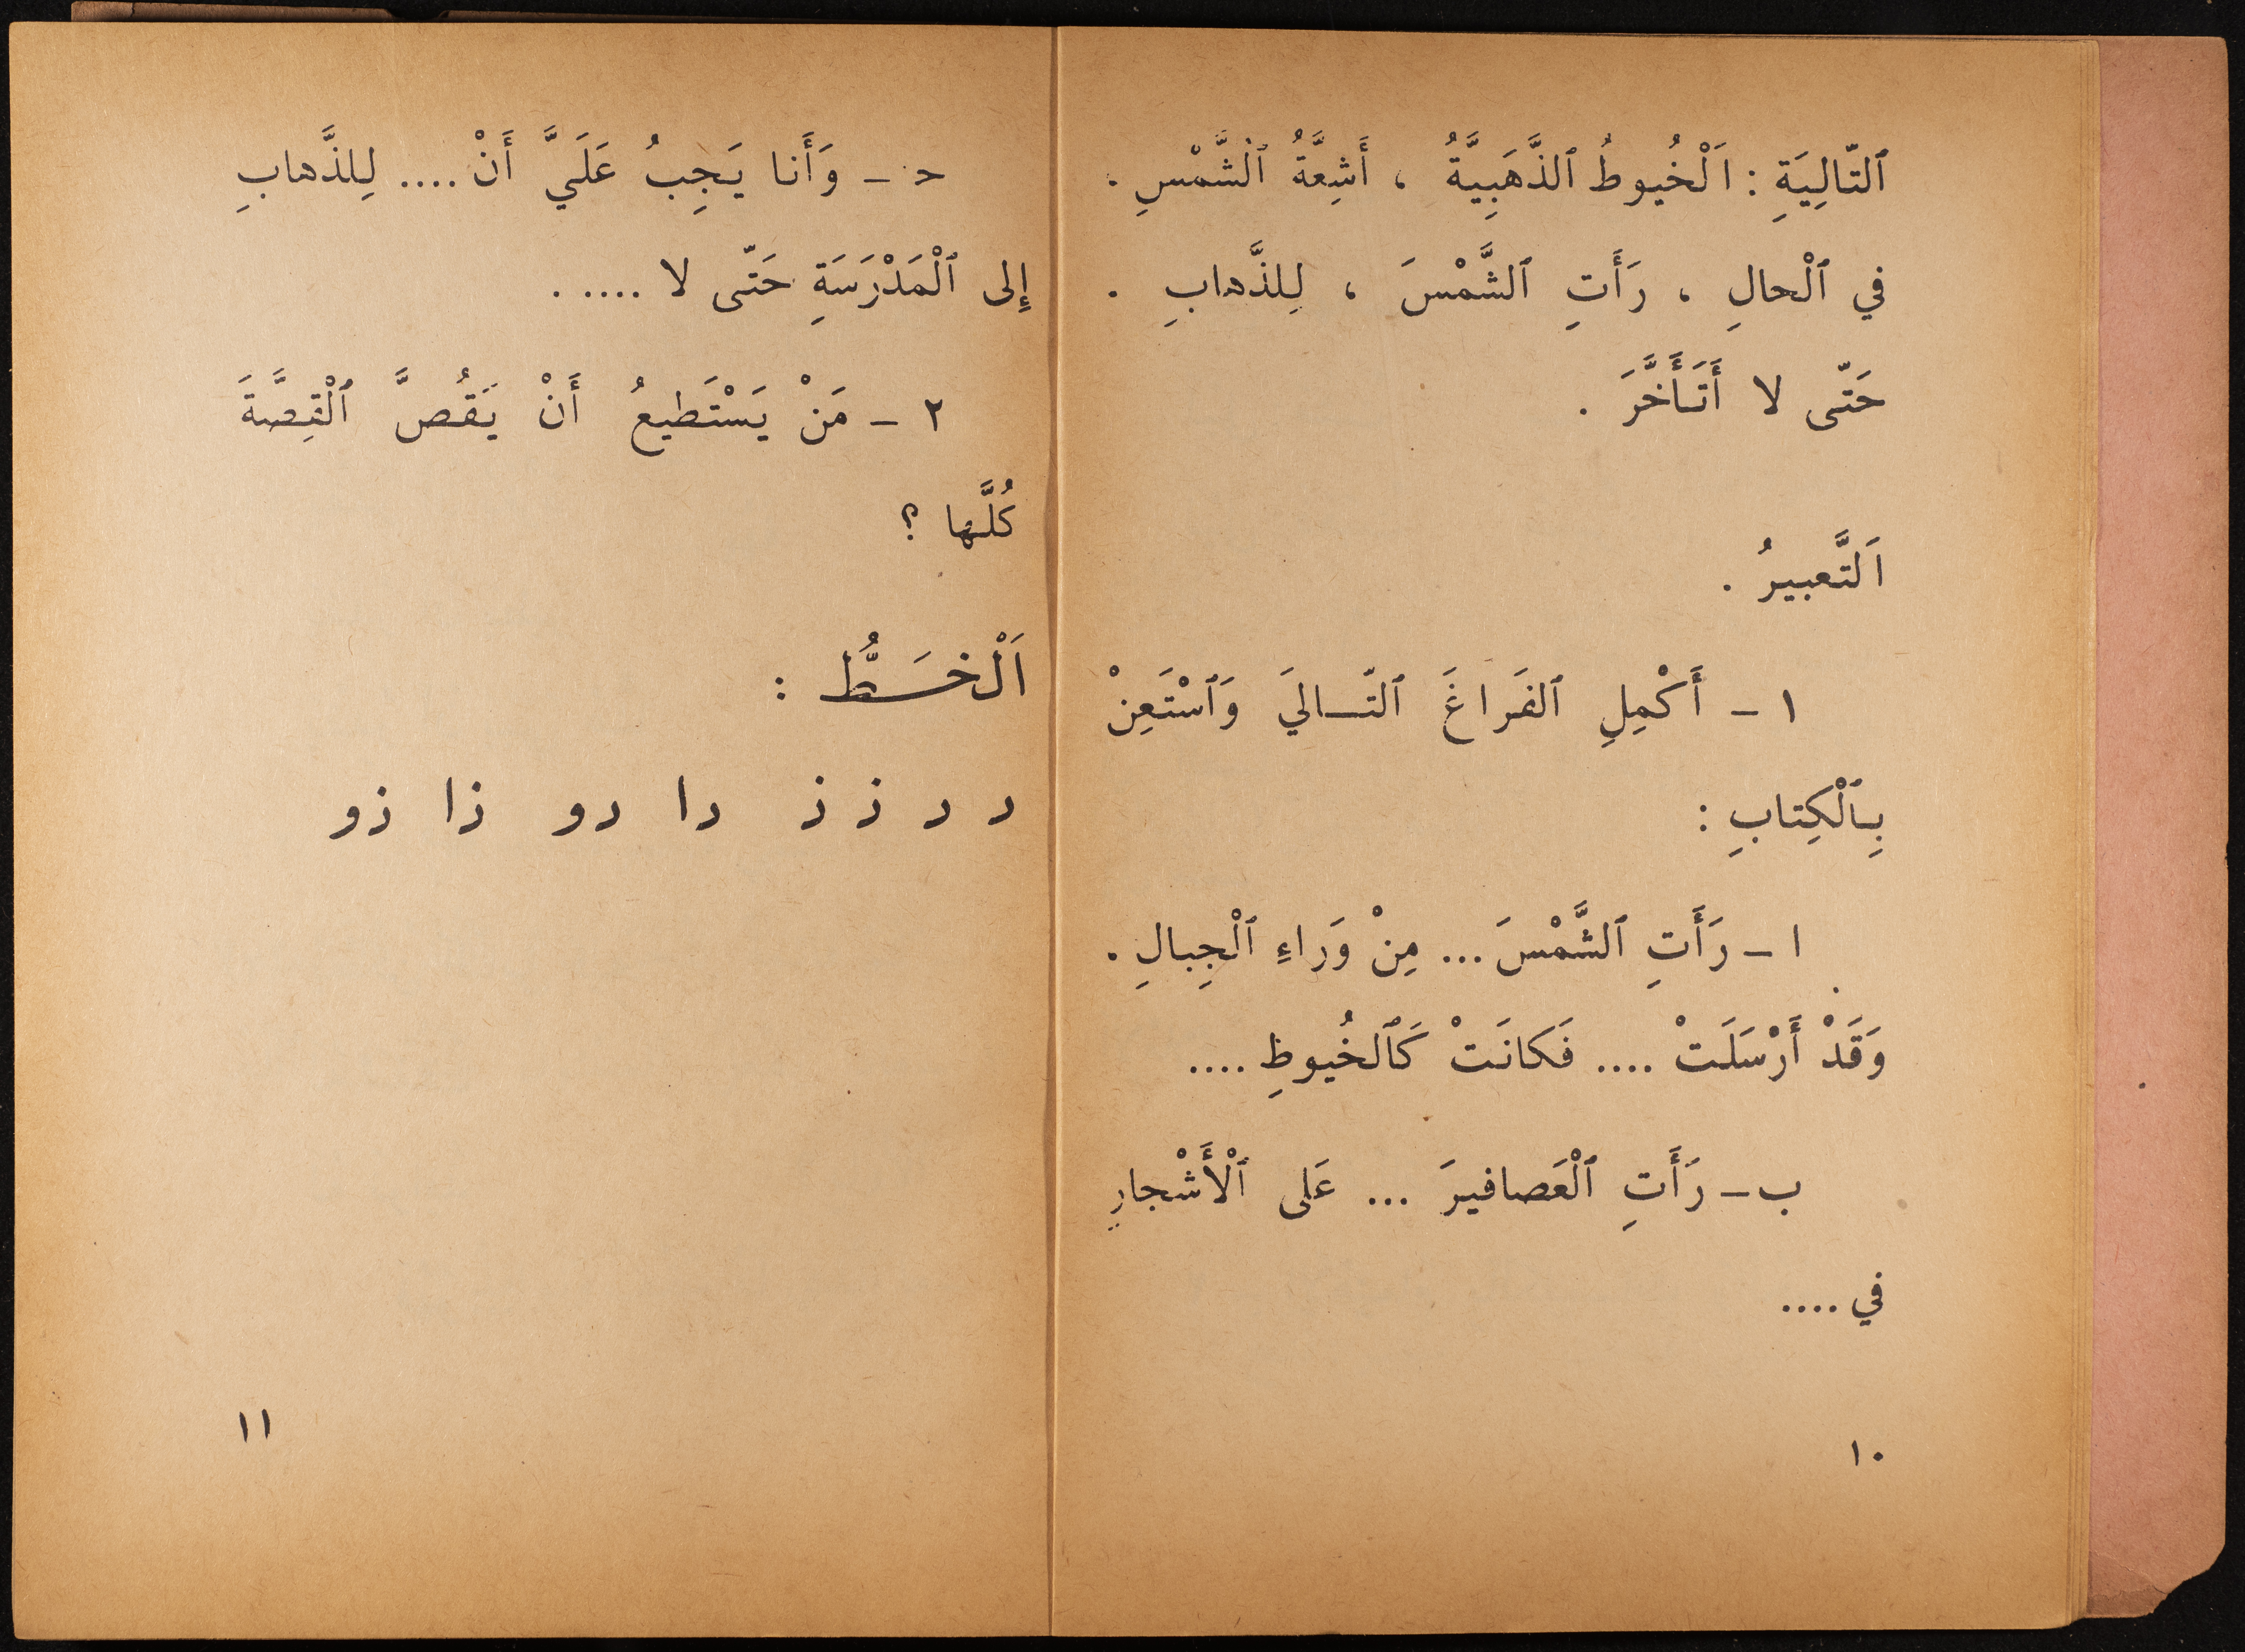 ٱلتّالِيَةِ : اَلْخُيوطُ ٱلذَّهَبِيَّةُ ، أَشِعَّةُ ٱلشَّمْسِ .
في ٱلْحالِ ، رَأَتِ ٱلشَّمْسَ ، لِلذَّهابِ .
حَتّى لا أَتَأَخَّرَ .
اَلتَّعبيرُ .
١ - أَكْمِلِ ٱلفَراغَ ٱلتّـالِيَ وَٱسْتَعِنْ
بِٱلْكِتابِ :
ا - رَأَتِ ٱلشَّمْسَ ... مِنْ وَراءِ ٱلْجِبالِ .
وَقَدْ أَرْسَلَتْ .... فَكانَتْ كَٱلخُيوظِ ....
ب - رَأَتِ ٱلْعَصافيرَ ... عَلى ٱلْأَشْجارِ
في ....
١٠
حـ - وَأَنا يَجِبُ عَلَيَّ أَنْ .... لِلذَّهابِ
إِلى ٱلْمَدْرَسَةِ حَتّى لا .... .
٢ - مَنْ يَسْتَطيعُ أَنْ يَقُصَّ ٱلْقِصَّةَ
كُلَّها ؟
اَلْخَـطُّ :
د د ذ ذ دا دو ذا ذو
١١